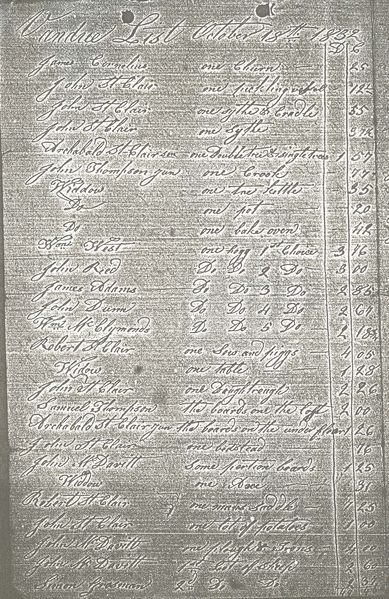 Vandue List October 18th 1832
D C
James Cornelius one Churn - 25
John St Clair one pickling vessel - 12½
John St Clair one sythe & Cradle - 35
John St Clair one Sythe - 37½
Archabald St Clair sen one Doubletree & singletrees 1 57
John Thompson Jun one Crook - 77
Widdow one tea kettle - 35
Do one pot - 20
Do one bake oven - 42
Wm West one hogg 1st Choice 3 16
John Reed Do Do 2 Do 3 00
James Adams Do Do 3 Do 2
John Dunn Do Do 4 Do 2 61
Wm McClymonds Do Do 5 Do 2
Robert St Clair one Sow and piggs 4 05
Widow one table 1 28
John St Clair one Doughtrough 2 26
Samuel Thompson the boards on the loft 2 00
Archabald St Clair Jun the boards on the under floor 1 26
John St Clair one bedstead - 16
John McDavitt Some portion boards 1 25
Widdow one Axe - 31
Robert St Clair one mans Saddle - 25
John St Clair one lot of potatoes 1 00
John McDavitt one plough & Irons 4 00
John McDavitt 1st Lot of Sheep 2
2nd Do Do 2